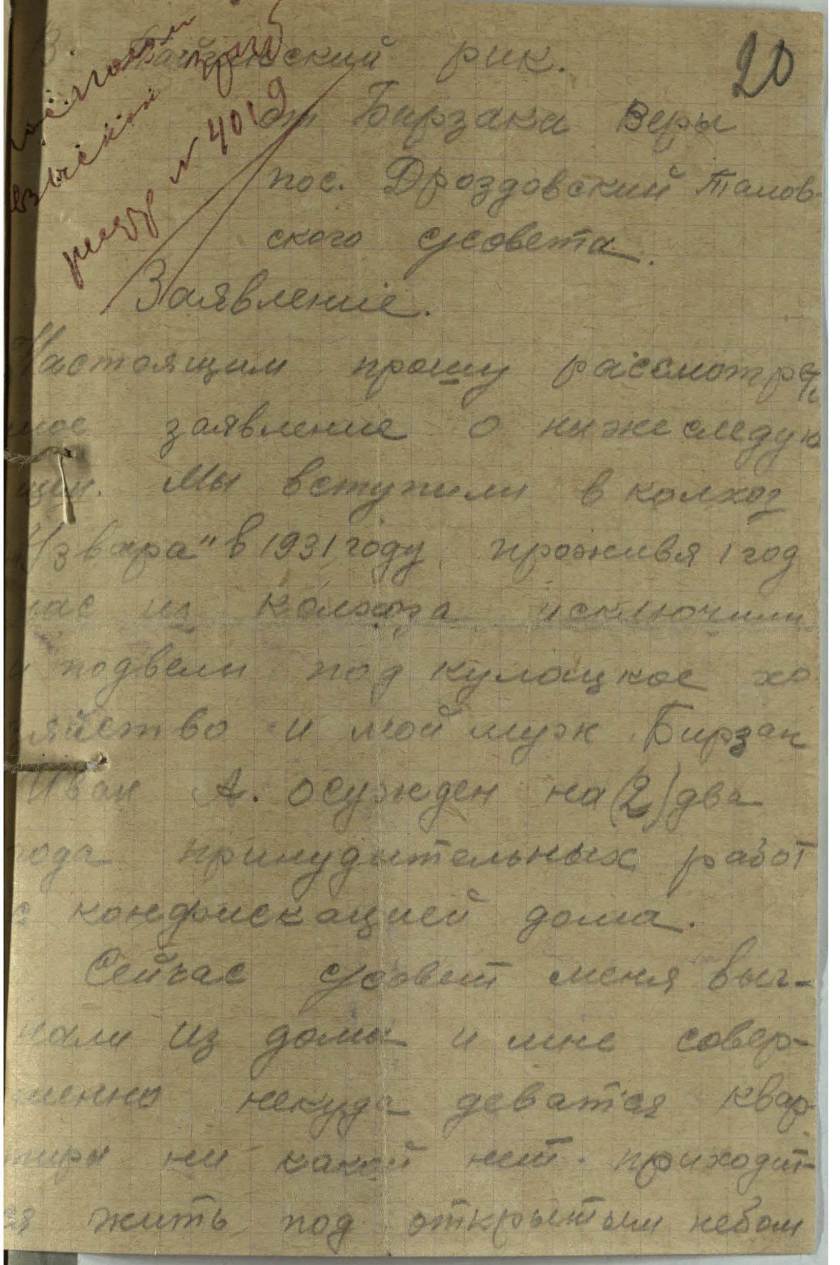 20
В. Тайгинский рик.
от Бирзака Веры
пос. Дроздовский Талов-
ского с/совета.
№ 4019
Заявление.
Настоящим прошу рассмотреть
мое заявление о нижеследую
щем. Мы вступили в колхоз
"Извара" в 1931 году, проживя 1 год
нас из колхоза исключили
и подвели под кулацкое хо
зяйство и мой муж Бирзак
Иван А. осужден на (2) два
года принудительных работ
с конфискацией дома.
Сейчас с/совет меня выг-
нали из дома и мне совер-
шенно некуда деватся квар-
тиры ни какой нет. приходит-
ся жить под открытым небом